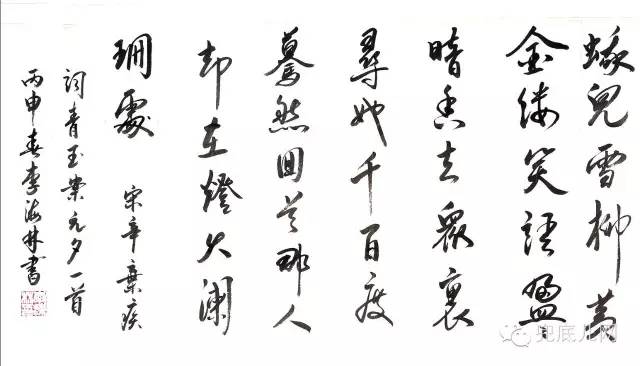 蛾兒雪柳黄
金缕笑語盈
暗香去眾裏
尋她千百度
驀然回首那人
却在燈火澜
珊處 宋辛棄疾
詞青玉案元夕一首
丙申春李海林書
兜底儿网